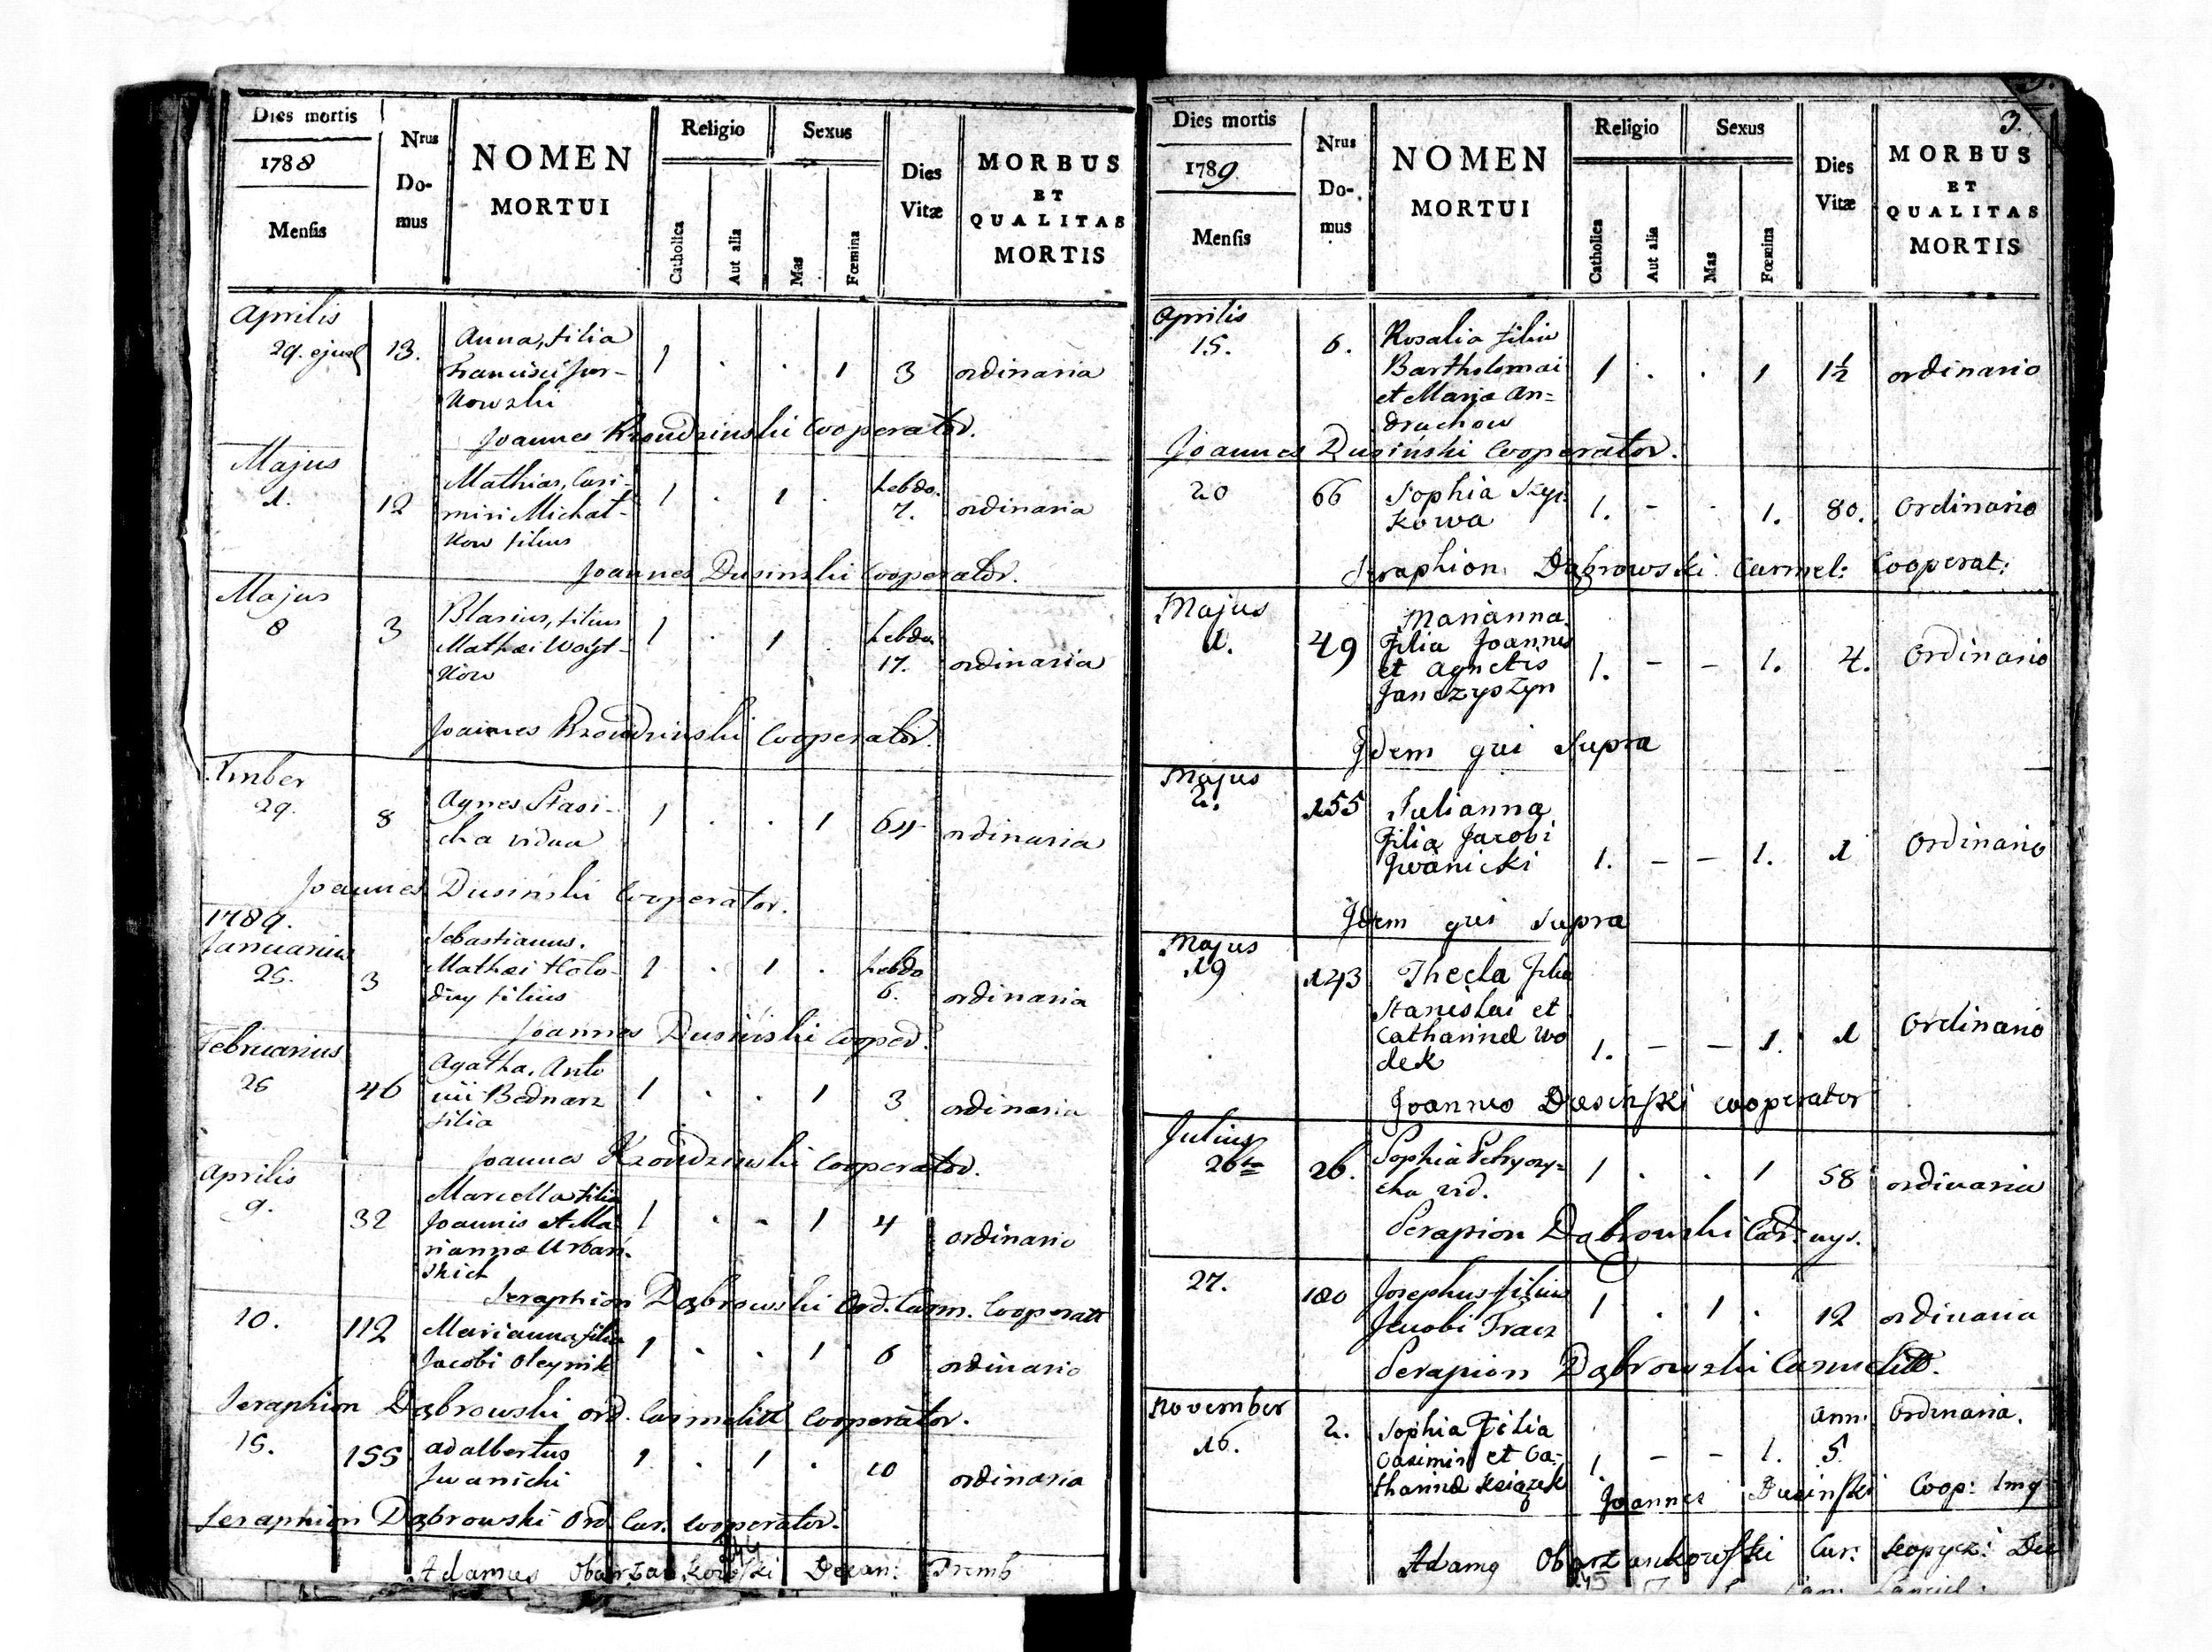 Dies mortis
1788
Mensis
Nrus
Do-
mus
NOMEN
MORTUI
Religio
Catholica
Aut alia
Sexus
Mas
Fœmina
Dies
Vitæ
MORBUS
ET
QUALITAS
MORTIS
Aprilis
29. ejusd 13. Anna, filia
Francisci
kowski
1 . . 1 3 ordinaria
Joannes Cooperator.
Majus
1. 12 Mathias, Casi-
miri Michał-
kow filius
1 . 1 . hebdo.
7. ordinaria
Joannes Dusinski Cooperator.
Majus
8 3 Blasius, filius
Mathæi Woyt-
kow
1 . 1 . hebdo.
17. ordinaria
Joannes Cooperator.
29. 8 Agnes Stasi-
cha vidua
1 . . 1 64 ordinaria
Joannes Dusiński Cooperator.
1789.
Januarius
25. 3 Sebastianus.
Mathæi Hoło-
filius
1 . 1 . hebdo
6. ordinaria
Joannes Dusiński
Februarius
26 46 Agatha, Anto
nii Bednarz
filia
1 . . 1 3 ordinaria
Joannes Cooperator.
Aprilis
9. 32 Marcella filia
Joannis et Ma
riannæ Urbań-
skich
1 . - 1 4 ordinario
Seraphion Dąbrowski Ord. Carm. Cooperatt
10. 112 Marianna filia
Jacobi Oleynik
1 . . 1 6 ordinario
Seraphion Dąbrowski ord. Carmelitt Cooperator.
15. 155 Adalbertus
Iwanicki
1 . 1 . 10 ordinaria
Seraphion Dąbrowski Ord. Car. Cooperator.
Adamus Obarzankowski Decan: Tremb
Dies mortis
1789.
Mensis
Nrus
Do-
mus
NOMEN
MORTUI
Religio
Catholica
Aut alia
Sexus
Mas
Fœmina
Dies
Vitæ
3.
MORBUS
ET
QUALITAS
MORTIS
Aprilis
15. 6. Rosalia filia
Bartholomæi
et Mariæ An=
druchow
1 . . 1 1½ ordinario
Joannes Dusiński Cooperator.
20 66 Sophia
kowa
1. - . 1. 80. Ordinario
Seraphion Dąbrowski Carmel: Cooperat:
Majus
1. 49 Marianna
Filia Joannis
et Agnetis
Janczyszyn
1. - - 1. 4. Ordinario
Idem qui Supra
Majus
2. 155 Julianna
Filia Jacobi
Iwanicki
1. - - 1. 1 Ordinario
Idem qui Supra
Majus
19 143 Thecla Filia
Stanislai et
Catharinæ Wo
dek
1. - - 1. 1 Ordinario
Joannes Dusinski Cooperator
Julius
26ta 26. Sophia
cha vid.
1 . . 1 58 ordinaria
Serapion Dąbrowski
27. 180 Josephus filius
Jacobi Tracz
1 . 1 . 12 ordinaria
Serapion Dąbrowski Carmelitt.
November
16. 2. Sophia Filia
Casimiri et Ca-
tharinæ Książek
1. - - 1. Ann:
5. Ordinaria.
Joannes Dusinski Coop:
Adamg Obarzankowski Cur: